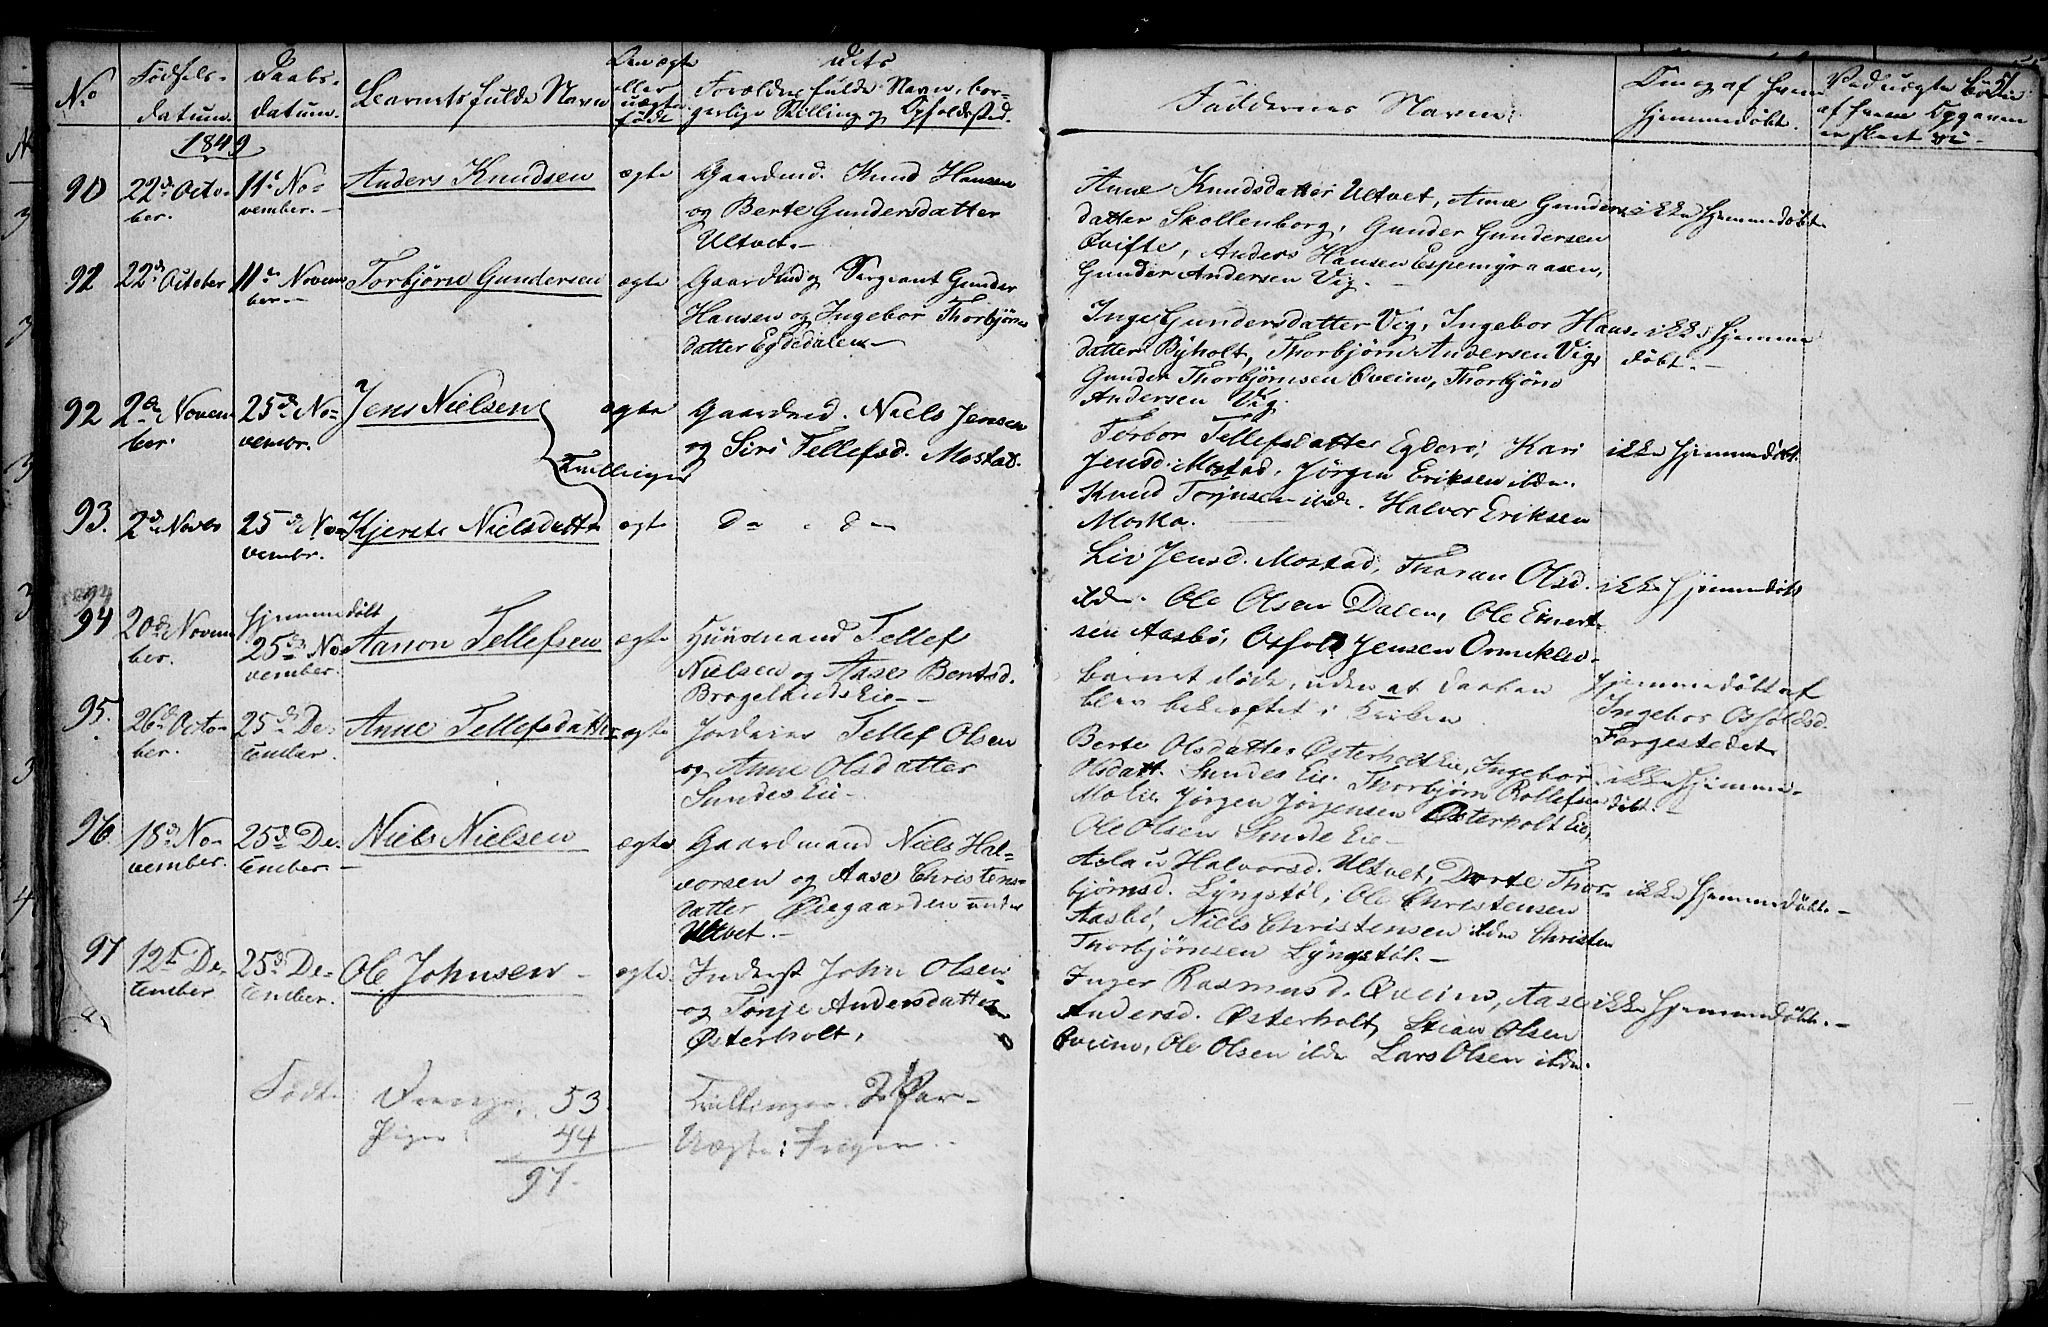 No
Fødsels-
datum.
Daabs-
datum.
Barnets fulde Navn
Om ægte
eller
uægte
født
dets
Forældres fulde Navn, bor-
gerlige Stilling og Opholdssted.
Faddernes Navne.
Om og af hvem
hjemmedøbt.
Ved uægte
af hvem Opgaven
er skeet
51
1849
90
22de Octo-
ber.
11te No-
vember.
Anders Knudsen
ægte
Gaardmd. Knud Hansen
og Berte Gundersdatter
Ultvet.
Anne Knudsdatter Ultvet, Anne Gunders-
datter Skollenborg, Gunder Gundersen
Qvifte, Anders Hansen Espemyraasen,
Gunder Andersen Vig.
ikke hjemmedøbt
92
22de October
11te Novem-
ber.
Torbjørn Gundersen
ægte
Gaardmd og Sergeant Gunder
Hansen og Ingebor Thorbjørns
datter Egdedalen
Inge Gundersdatter Vig, Ingebor Hans-
datter Byholt, Thorbjørn Andersen Vig,
Gunder Thorbjørnsen Qveim, Thorbjørn
Andersen Vig.
ikke hjemme
døbt.
92
2de Novem
ber.
25de No-
vembr.
Jens Nielsen
Tvillinger
ægte
Gaardmd. Niels Jensen
og Siri Tellefsd. Mostad.
Torbor Tellefsdatter Egderø, Kari
Jensd. Mostad, Jørgen Eriksen ibdm.
Knud Torjusen ibd. Halvor Eriksen
Moska.
ikke hjemmedøbt.
93.
2de Novbr
25de No-
vembr.
Kjerste Nielsdattr
ægte
d- d-
Liv Jensd. Mostad, Thoran Olsd.
ibdm. Ole Olsen Dalen, Ole Einert-
sen Aasbø, Osfold Jensen Ormeklev-
ikke hjemmedøbt
94
20de Novem
ber.
hjemmedøbt
25de No-
vember.
Aanon Tellefsen
ægte
Huusmand Tellef
Nielsen og Aase Bentsd.
Brogelands Eie
barnet døde, uden at Daaben
blev bekræftet i Kirken
hjemmedøbt af
Ingebor Osfoldsd.
Færgestedet
95.
26de Octo-
ber.
25de De-
cember.
Anne Tellefsdatter
ægte
Jordeier Tellef Olsen
og Anne Olsdatter
Sundes Eie
Berte Olsdatter Østerholt Eie, Ingebor
Olsdatt. Sundes Eie. Thorbjørn Rollefsen
Mo Eie, Jørgen Jørgensen Østerholt Eie,
Ole Olsen Sunde Eie
ikke hjemme-
døbt.
96.
18de No-
vember.
25de De-
cember.
Niels Nielsen
ægte
Gaardmand Niels Hal-
vorsen og Aase Christens-
datter Øiegaarden under
Ultvet.
Aslau Halvorsd. Ultvet, Dorte Thor-
bjørnsd. Lyngstøl, Ole Christensen
Aasbø, Niels Christensen ibdm Christen
Thorbjørnsen Lyngstøl.
ikke hjemmedøbt.
97
12te De-
cember
25de De-
cember.
Ole Johnsen
ægte
Inderst John Olsen
og Tonje Andersdatter
Østerholt.
Inger Rasmusd. Qveim, Aase
Andersd. Østerholt, Stian Olsen
Qveim, Ole Olsen ibdm Lars Olsen ibdm.
ikke hjemmedøbt.
Født: Drenge, 53
Piger: 44
97.
Tvillinger. 2 Par
Uægte: Ingen